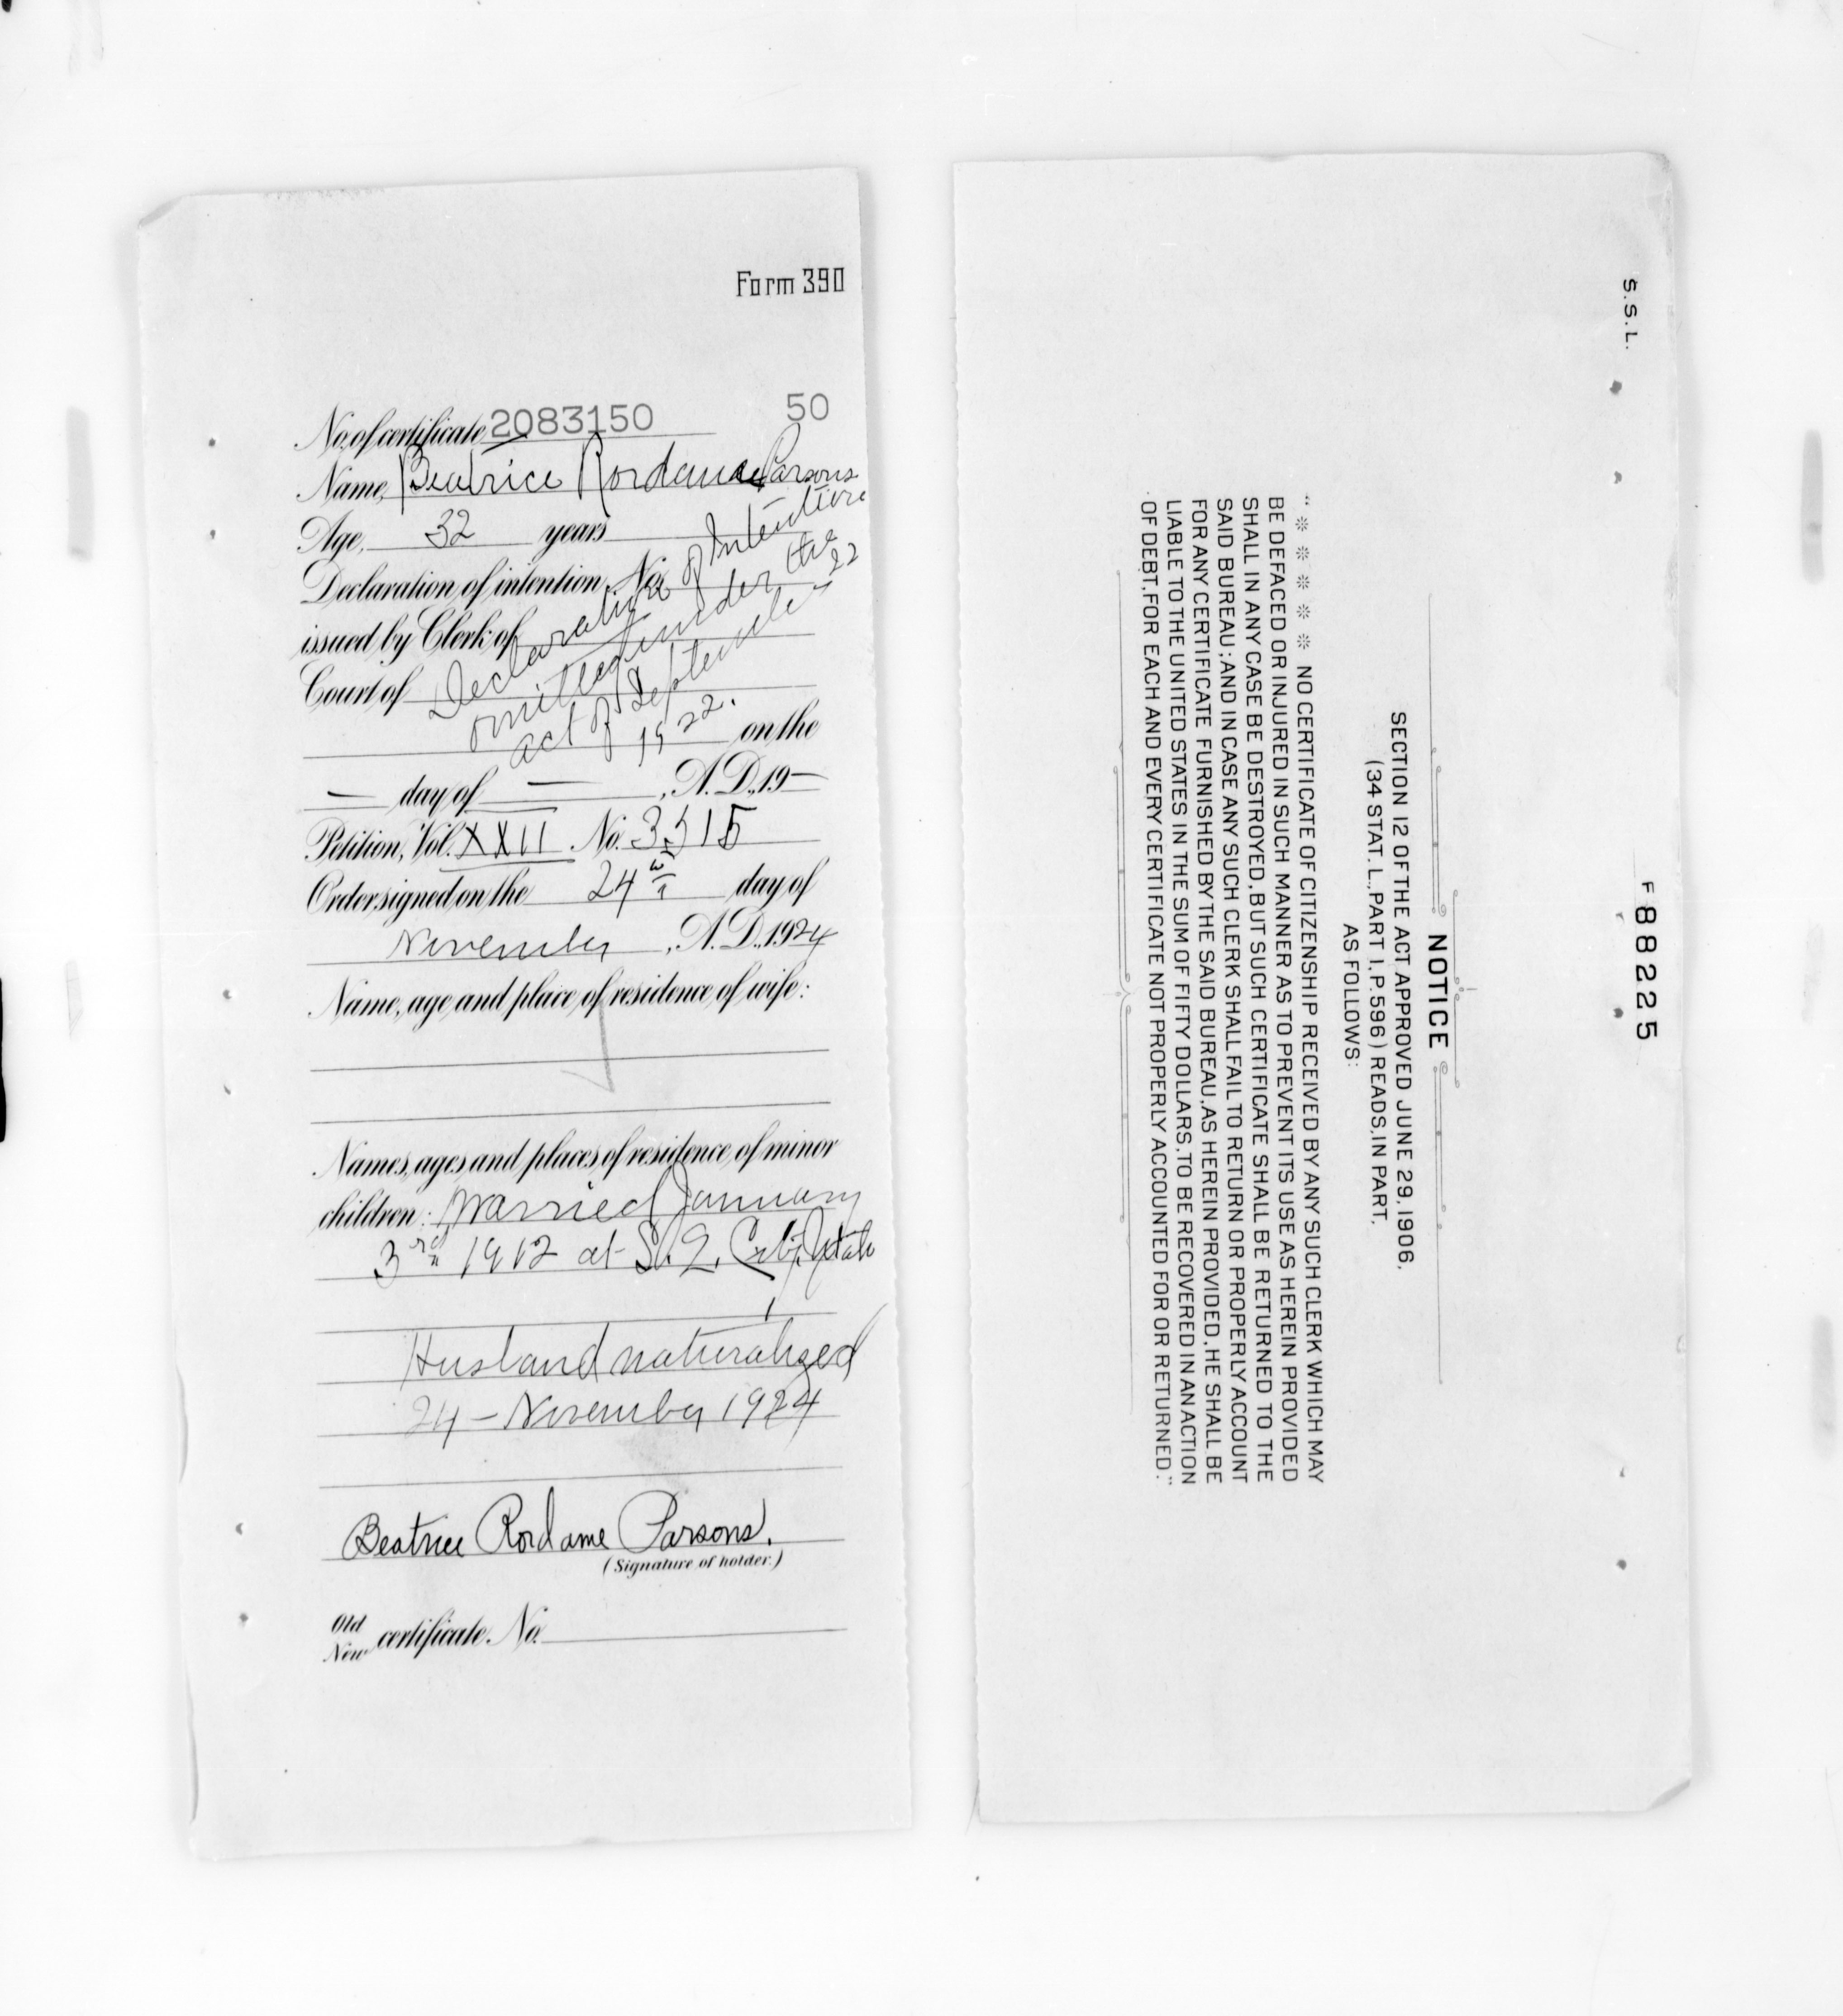 Form 390
No. of certificate 2083150 50
Name, Beatrice Rordame Parsons
Age, 32 years
Declaration of intention, No.
issued by Clerk of
Court of
Declaration of Intention
omitted under the
act of September 22
1922. on the
— day of — , A.D., 19—
Petition, Vol. XXII No. 3515
Order signed on the 24th day of
November , A.D., 1924
Name, age, and place of residence of wife:
Names, ages and places of residence of minor
children: Married January
3rd 1912 at S. L. City, Utah
Husband naturalized
24 - November 1924
Beatrice Rordame Parsons.
(Signature of holder.)
Old
New certificate No.
S.S.L.
F 88225
NOTICE
SECTION 12 OF THE ACT APPROVED JUNE 29, 1906,
(34 STAT. L., PART 1, P. 596) READS, IN PART,
AS FOLLOWS:
" * * * * * NO CERTIFICATE OF CITIZENSHIP RECEIVED BY ANY SUCH CLERK WHICH MAY
BE DEFACED OR INJURED IN SUCH MANNER AS TO PREVENT ITS USE AS HEREIN PROVIDED
SHALL IN ANY CASE BE DESTROYED, BUT SUCH CERTIFICATE SHALL BE RETURNED TO THE
SAID BUREAU; AND IN CASE ANY SUCH CLERK SHALL FAIL TO RETURN OR PROPERLY ACCOUNT
FOR ANY CERTIFICATE FURNISHED BY THE SAID BUREAU, AS HEREIN PROVIDED, HE SHALL BE
LIABLE TO THE UNITED STATES IN THE SUM OF FIFTY DOLLARS, TO BE RECOVERED IN AN ACTION
OF DEBT, FOR EACH AND EVERY CERTIFICATE NOT PROPERLY ACCOUNTED FOR OR RETURNED."